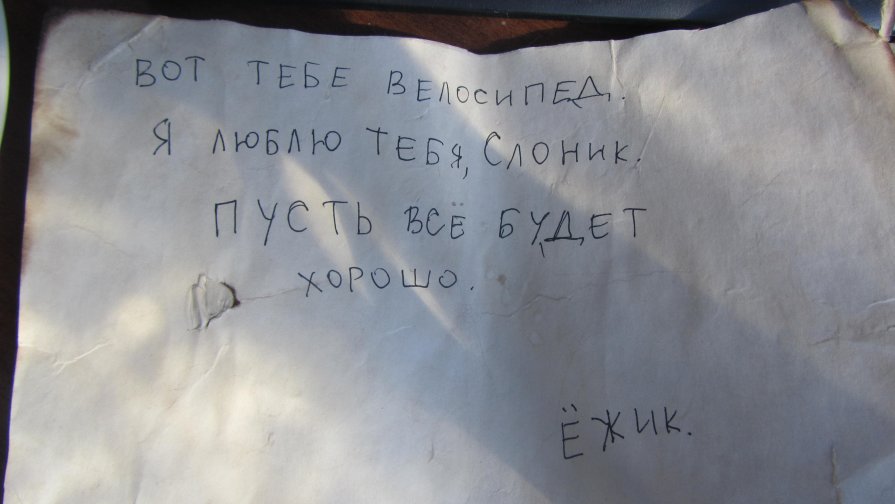 ВОТ ТЕБЕ ВЕЛОСИПЕД.
Я ЛЮБЛЮ ТЕБЯ, СЛОНИК.
ПУСТЬ ВСЁ БУДЕТ
ХОРОШО.
ЁЖИК.